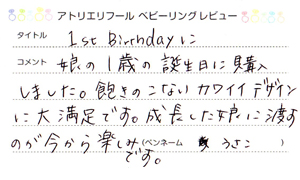 アトリエリフール ベビーリングレビュー
タイトル 1st Birthdayに
コメント 娘の1歳の誕生日に購入
しました。飽きのこないカワイイデザイン
に大満足です。成長した娘に渡す
のが今から楽しみです。(ペンネーム うさこ )